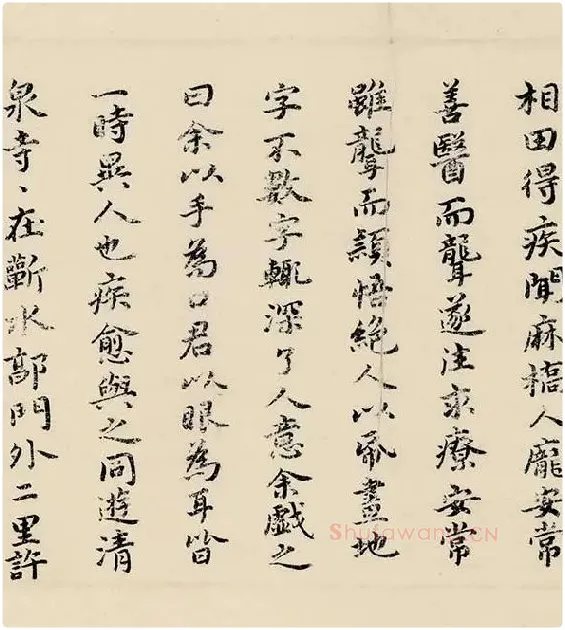 相田得疾聞麻橋人龐安常
善醫而聾遂往求療安常
雖聾而穎悟絕人以帋畫地
字不數字輒深了人意余戲之
曰余以手為口君以眼為耳皆
一時異人也疾愈與之同遊清
泉寺〻在蘄水郭門外二里許
Shufawang.CN